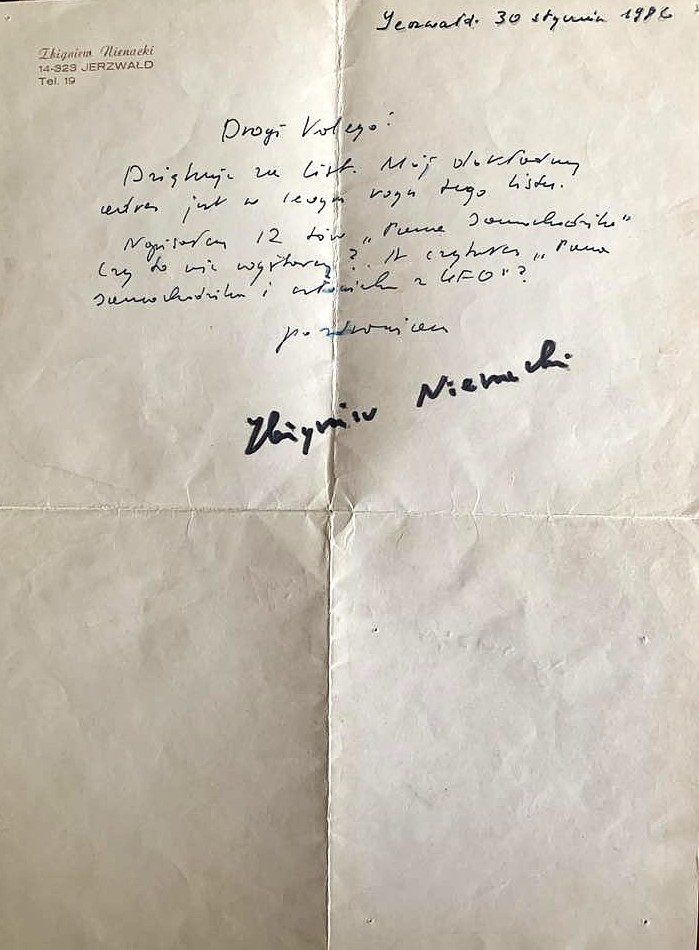 Jerzwałd. 30 stycznia 1986
Zbigniew Nienacki
14-323 JERZWAŁD
Tel. 19
Drogi Kolego!
Dziękuję za list. Mój dokładny
adres jest w lewym rogu tego listu.
Napisałem 12 tomów „Pana Samochodzika"
Czy to nie wystarczy? A czytałeś „Pana
Samochodzika i człowieka z UFO"?
pozdrawiam
Zbigniew Nienacki